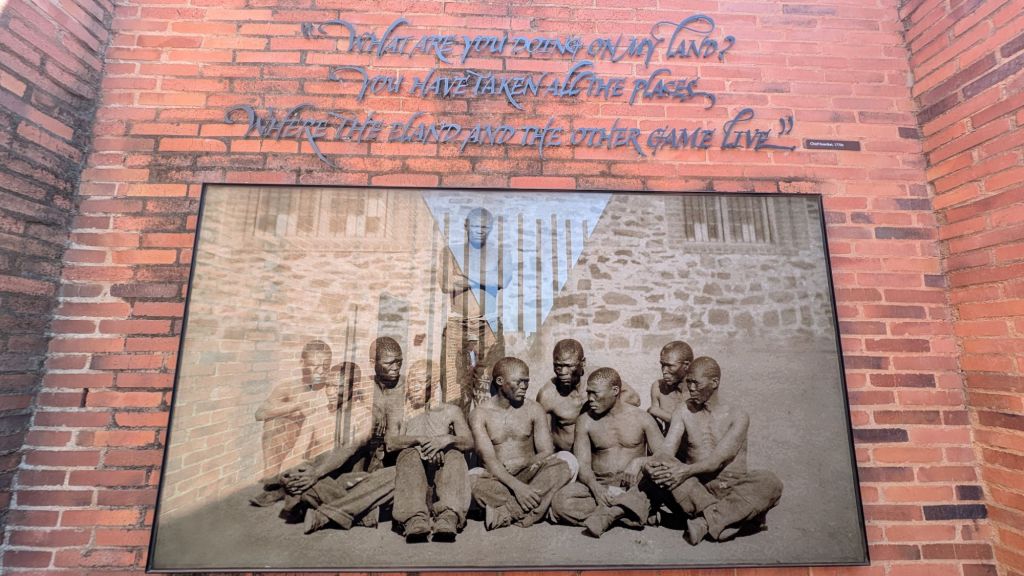 "WHAT ARE YOU DOING ON MY LAND?
"YOU HAVE TAKEN ALL THE PLACES
WHERE THE ELAND AND THE OTHER GAME LIVE."